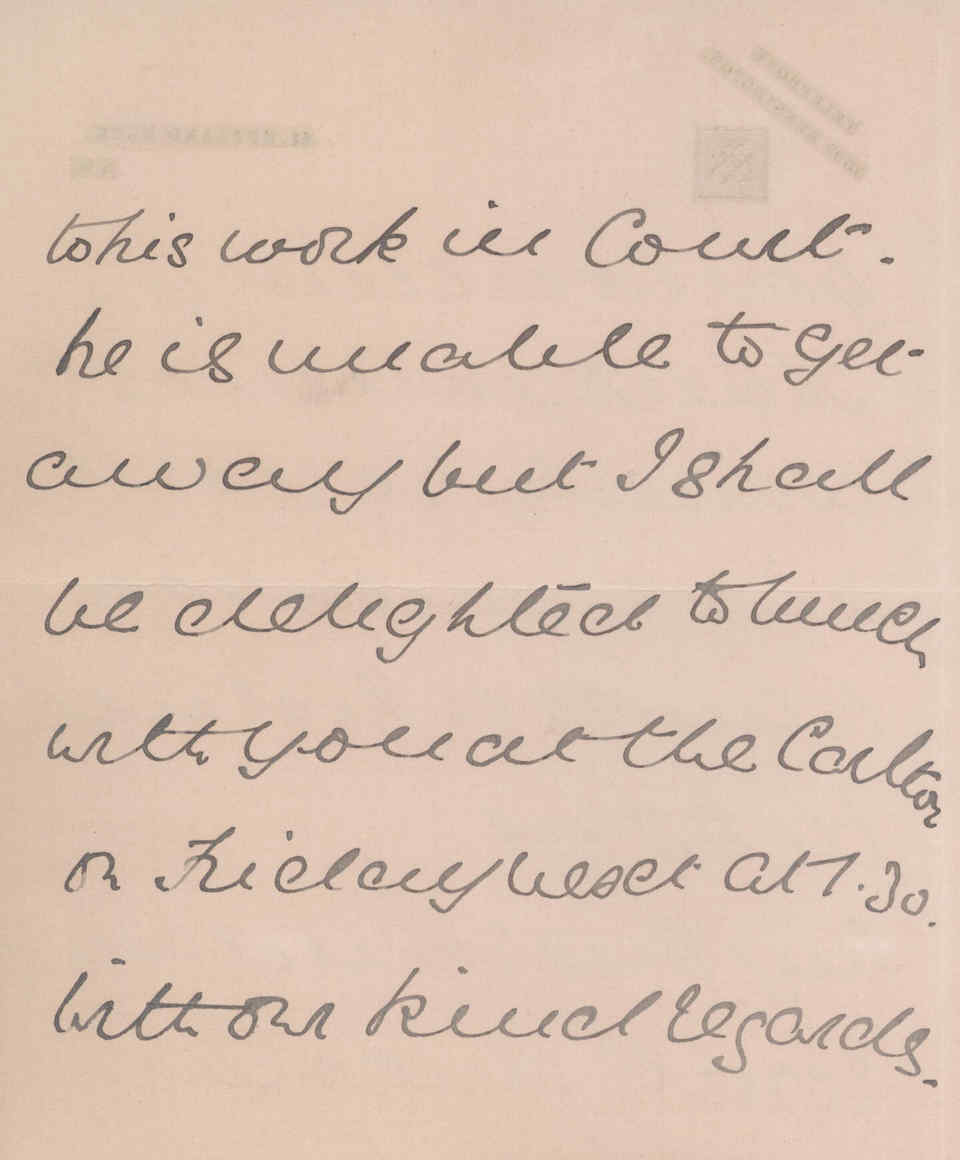 to his work in Court.
he is unable to get
away but I shall
be delighted to lunch
with you at the Carlton
on Friday next at 1.30.
With our kind regards.